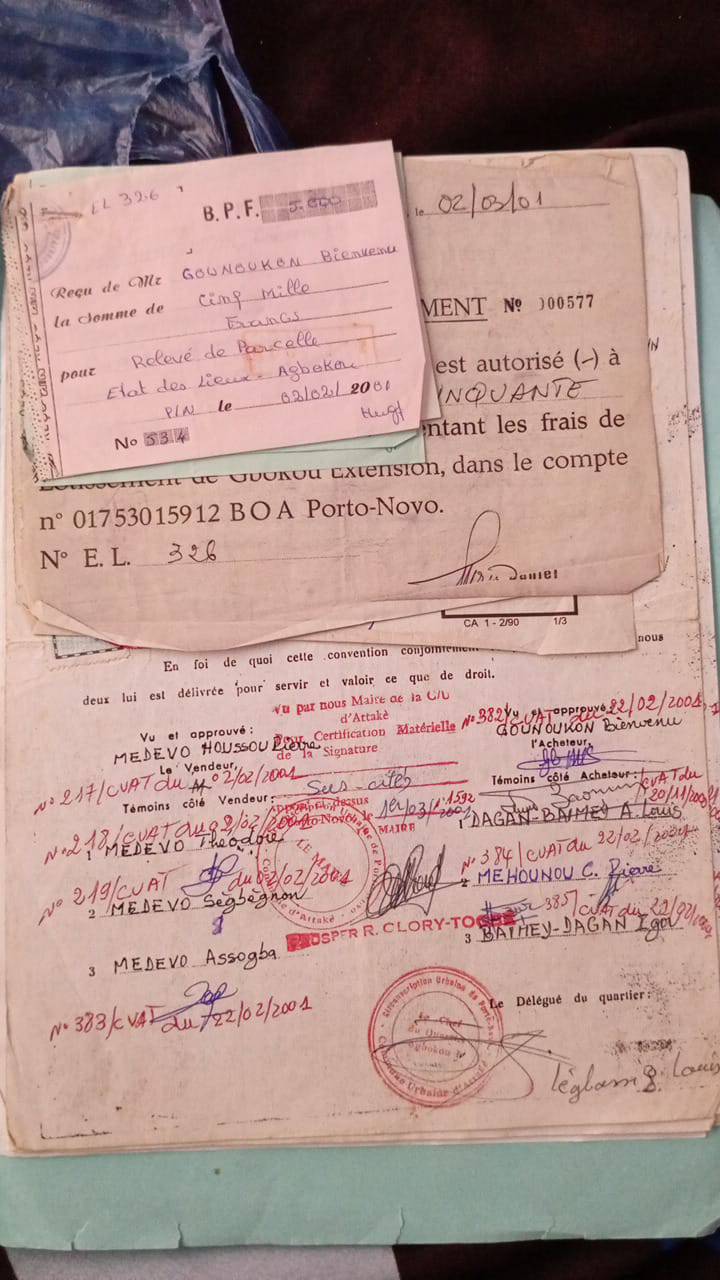 EL 326
B.P.F. 5.000
Reçu de Mr GOUNOUKON Bienvenu
la Somme de Cinq Mille
Francs
pour Relevé de Parcelle
Etat des Lieux - Agbokou
P/N le 02/02/2001
No 534
le 02/03/01
MENT No 000577
est autorisé (-) à
INQUANTE
entant les frais de
Lotissement de Gbokou Extension, dans le compte
n° 01753015912 BOA Porto-Novo.
N° E. L. 326
CA 1 - 2/90 1/3
En foi de quoi cette convention conjointement nous
deux lui est délivrée pour servir et valoir ce que de droit.
Vu par nous Maire de la C/U
d'Attakè
Pour Certification Matérielle
de la Signature
Sus-citée
Porto-Novo, le
MAIRE
Vu et approuvé:
MEDEVO HOUSSOU Pierre
Le Vendeur,
N° 217/CVAT du 02/02/2001
Témoins côté Vendeur:
N° 218/CVAT du 02/02/2001
1 MEDEVO Théodore
N° 219/CVAT du 02/02/2001
2 MEDEVO Ségbégnon
3 MEDEVO Assogba
N° 383/CVAT du 22/02/2001
N° 382/CVAT du 22/02/2001
Vu et approuvé
GOUNOUKON Bienvenu
l'Acheteur,
Témoins côté Acheteur:
CVAT du
1 DAGAN-BAIMEY A. Louis
N° 384/CVAT du 22/02/2001
2 MEHOUNOU C. Pierre
385/CVAT du 22/02/2001
3 BAIMEY-DAGAN Igor
PROSPER R. CLORY-TOGBE
Le Délégué du quartier:
Circonscription Urbaine de Porto-Novo
Commune Urbaine d'Attakè
Le Chef
du Quartier
Agbokou